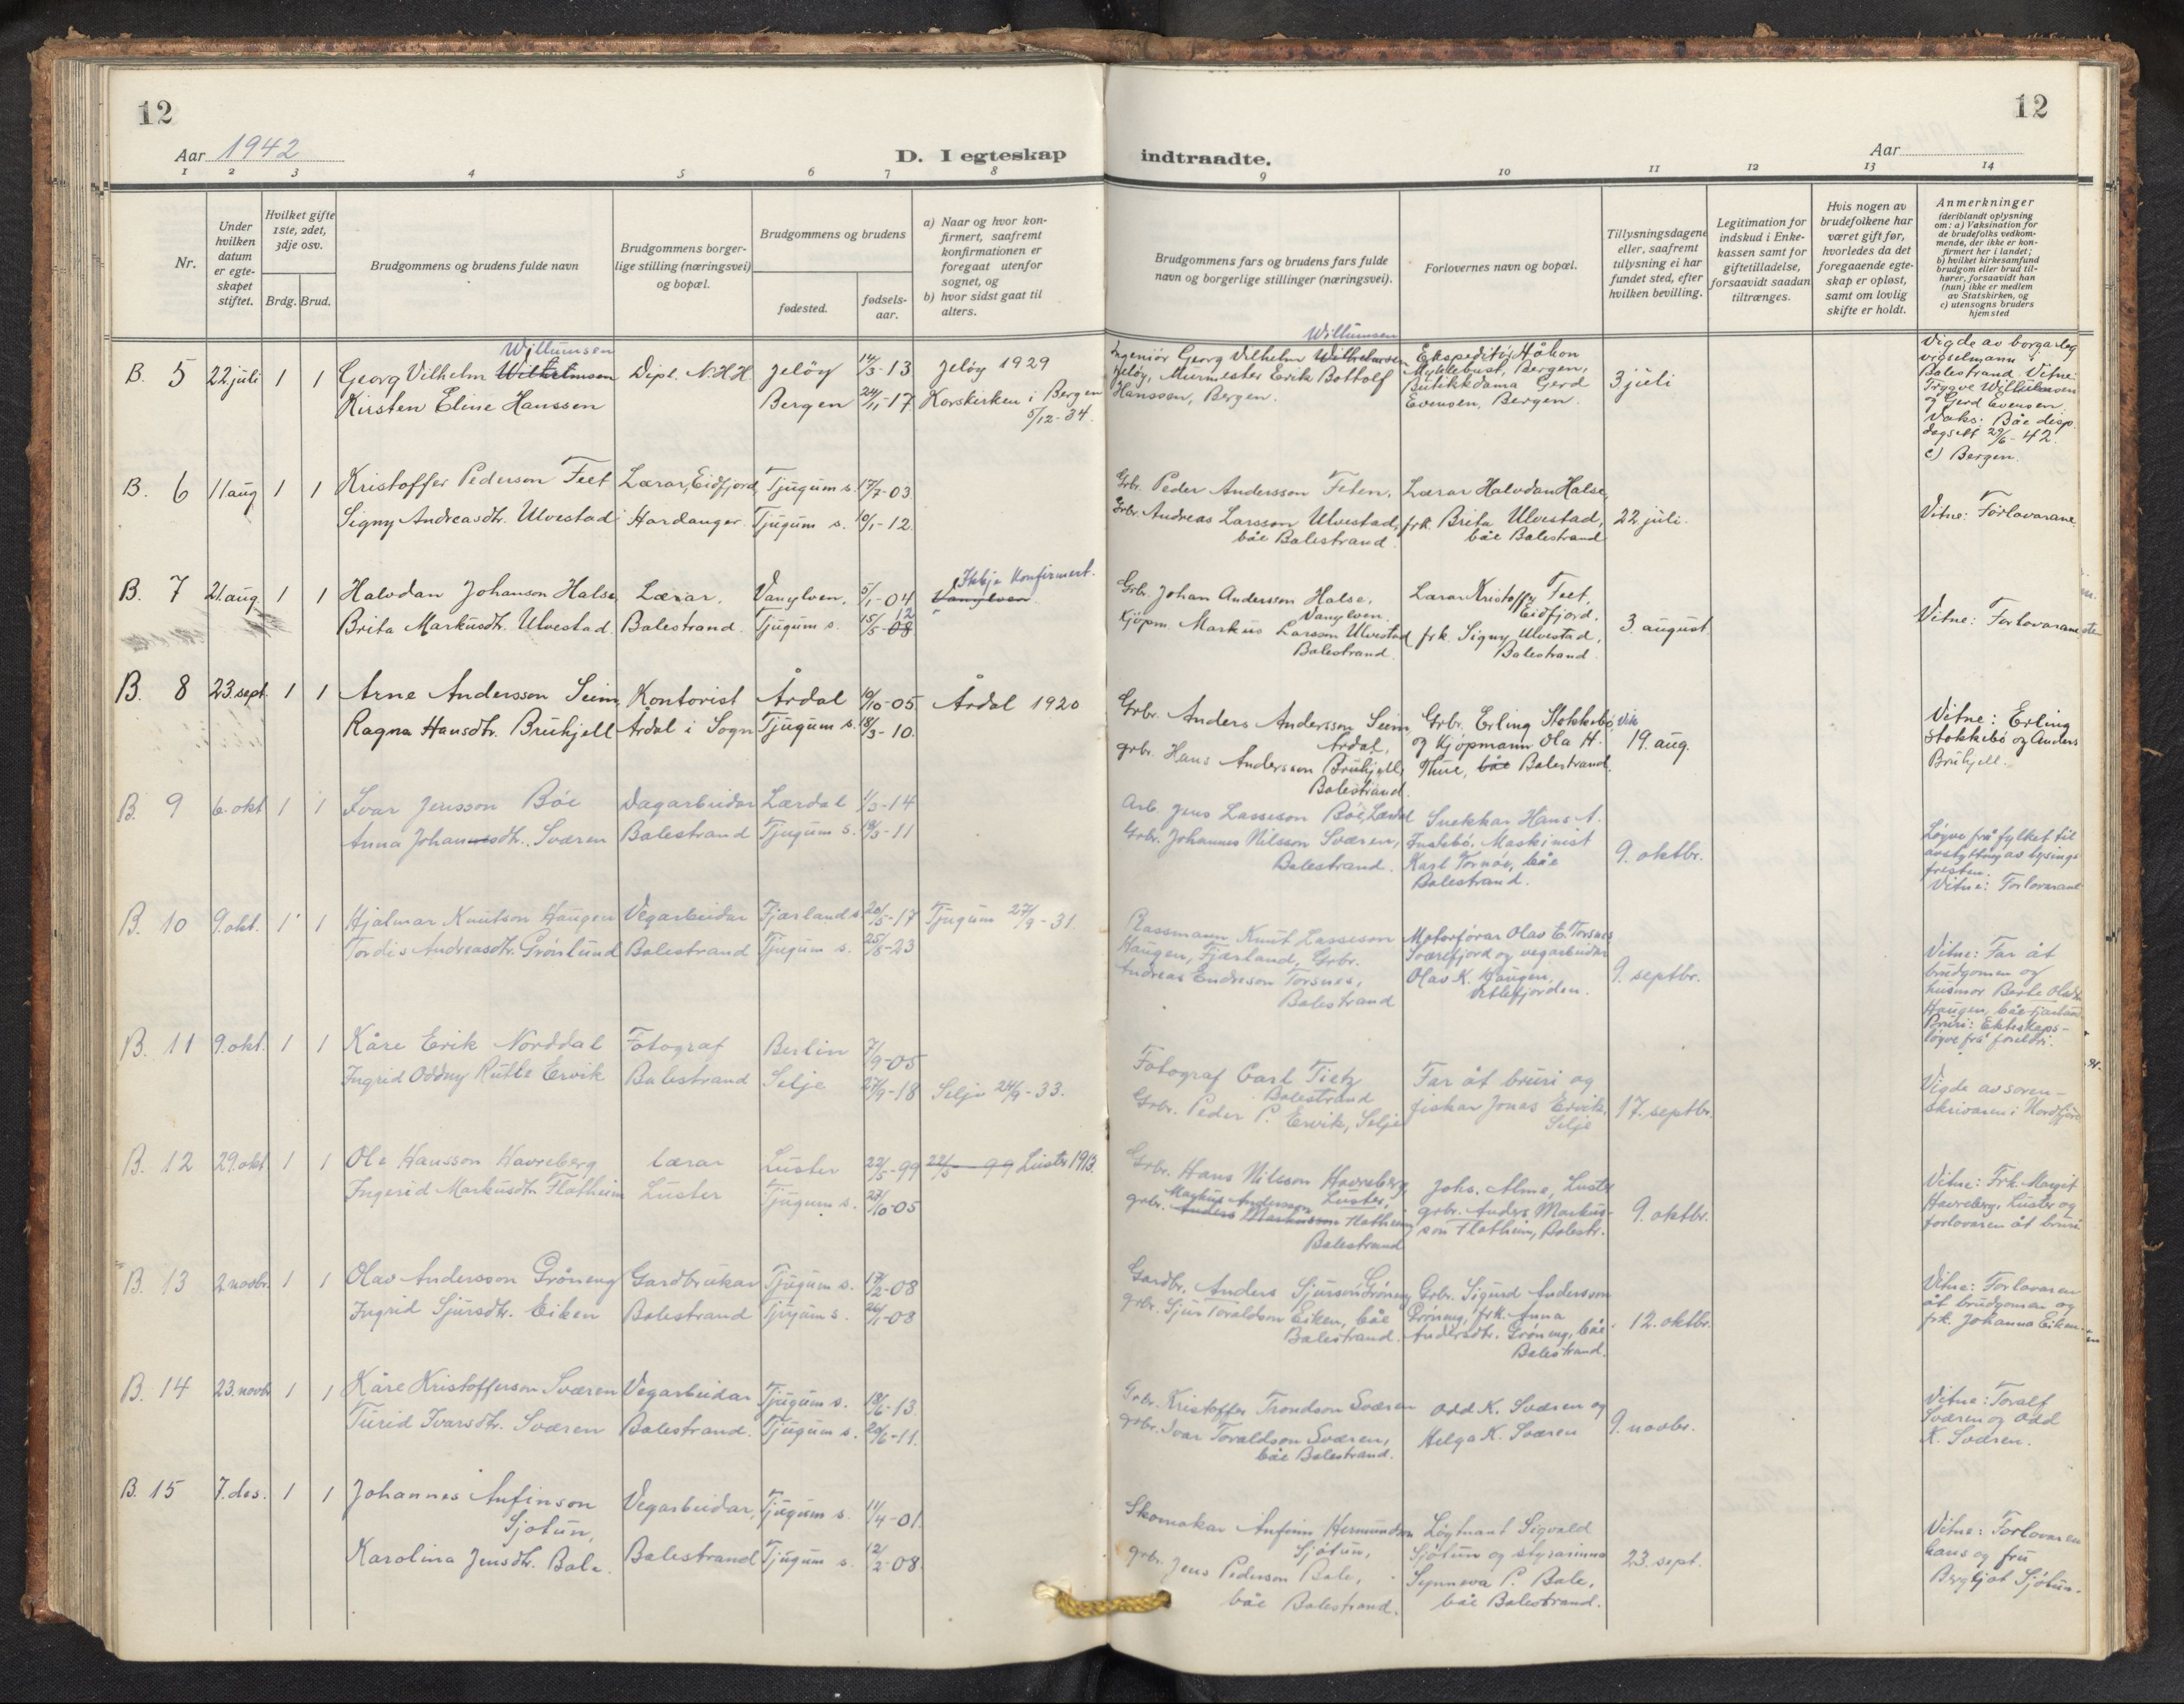 12
12
Aar 1942
D. I egteskap indtraadte.
Aar
1 2 3 4 5 6 7 8 9 10 11 12 13 14
Nr.
Under hvilken datum er egte-skapet stiftet.
Hvilket gifte 1ste, 2det, 3dje osv.
Brdg. Brud.
Brudgommens og brudens fulde navn
Brudgommens borger-lige stilling (næringsvei) og bopæl.
Brudgommens og brudens
fødested.
fødsels-aar.
a) Naar og hvor kon-firmert, saafremt konfirmationen er foregaat utenfor sognet, og
b) hvor sidst gaat til alters.
Brudgommens fars og brudens fars fulde navn og borgerlige stillinger (næringsvei).
Forlovernes navn og bopæl.
Tillysningsdagene eller, saafremt tillysning ei har fundet sted, efter hvilken bevilling.
Legitimation for indskud i Enke-kassen samt for giftetilladelse, forsaavidt saadan tiltrænges.
Hvis nogen av brudefolkene har været gift før, hvorledes da det foregaaende egte-skap er opløst, samt om lovlig skifte er holdt.
Anmerkninger
(deriblandt oplysning om: a) Vaksination for de brudefolks vedkom-mende, der ikke er kon-firmert her i landet; b) hvilket kirkesamfund brudgom eller brud til-hører, forsaavidt han (hun) ikke er medlem av Statskirken, og c) utensogns bruders hjemsted
B. 5 22 juli 1 1
Willumsen
Georg Vilhelm Wilhelmsen
Kirsten Eline Hanssen
Dipl. N.H.H.
Jeløy 14/3-13
Bergen 24/11-17
Jeløy 1929
Korskirken i Bergen
5/12-34.
Willumsen
Ingeniør Georg Vilhelm Wilhelmsen
Jeløy, Murmester Erik Bottolf
Hanssen, Bergen.
Ekspeditør Håkon
Myklebust, Bergen,
Butikkdama Gerd
Evensen, Bergen.
3 juli
Vigde av borgarleg
vigselmann i
Balestrand. Vitne:
Trygve Willumsen
og Gerd Evensen.
Vaks: Båe disp.
dagsett 29/6-42.
c) Bergen.
B. 6 11 aug 1 1
Kristoffer Pederson Feet
Signy Andreasdtr. Ulvestad
Lærar, Eidfjord,
Hardanger.
Tjugum s. 17/7-03.
Tjugum s. 10/1-12.
Grbr. Peder Andersson Feten,
Grbr. Andreas Larsson Ulvestad,
båe Balestrand.
Lærar Halvdan Halse,
frk. Brita Ulvestad,
båe Balestrand
22 juli.
Vitne: Forlovarane.
B. 7 21. aug. 1 1
Halvdan Johanson Halse
Brita Markusdtr. Ulvestad.
Lærar.
Balestrand.
Vanylven. 5/1-04
Tjugum s. 15/5-08 12
Ikkje konfirmert.
Vanylven.
Grbr. Johan Andersson Halse,
Vanylven.
Kjøpm. Markus Larsson Ulvestad
Balestrand.
Lærar Kristoffer Feet,
Eidfjord.
frk. Signy Ulvestad,
Balestrand.
3. august.
Vitne: Forlovarane
B. 8 23. sept. 1 1
Arne Andersson Seim
Ragna Hansdtr. Bruhjell
Kontorist
Årdal i Sogn
Årdal 10/10-05
Tjugum s. 18/3-10.
Årdal 1920
Grbr. Anders Andersson Seim,
Årdal,
grbr. Hans Andersson Bruhjell,
Balestrand.
Grbr. Erling Stokkebø, Vik
og kjøpmann Ola H.
Thue, båe Balestrand.
19. aug.
Vitne: Erling
Stokkebø og Anders
Bruhjell.
B. 9 6. okt 1 1
Ivar Jensson Bøe
Anna Johannesdtr. Sværen
Dagarbeidar
Balestrand
Lærdal 1/3-14
Tjugum s. 18/3-11
Arb. Jens Lasseson Bøe, Lærdal
Grbr. Johannes Nilsson Sværen,
Balestrand.
Snekkar Hans A.
Maskinist
Karl Tornøy, båe
Balestrand.
9. oktbr.
Løyve frå fylket til
avstytting av lysings
fristen.
Vitne: Forlovarane
B. 10 9. okt. 1 1
Hjalmar Knutson Haugen
Tordis Andreasdtr. Grønlund
Vegarbeidar
Balestrand
Fjærland s. 20/5-17
Tjugum s. 25/8-23
Tjugum 27/9-31.
Plassmann Knut Lasseson
Haugen, Fjærland, Grbr.
Andreas Endreson Torsnes,
Balestrand
Motorførar Olav E. Torsnes
Sværefjord og vegarbeidar
Olav K. Haugen,
Vetlefjorden.
9. septbr.
Vitne: Far åt
brudgomen og
husmor Berte Olsdtr.
Haugen, båe Fjærland
Bruri: Ekteskaps-
løyve frå foreldri.
B. 11 9. okt. 1 1
Kåre Erik Norddal
Ingrid Oddny Rutle Ervik
Fotograf
Balestrand
Berlin 7/9-05
Selje 27/9-18
Selje 24/9-33.
Fotograf Carl Tietz
Balestrand
Grbr. Peder P. Ervik, Selje
Far åt bruri og
fiskar Jonas Ervik,
Selje
17. septbr.
Vigde av soren-
skrivaren i Nordfjord
B. 12 29. okt. 1 1
Ole Hansson Havreberg
Ingerid Markusdtr. Flatheim
lærar
Luster
Luster 22/5-99
Tjugum s. 23/10-05
22/5-99 Luster 1913.
Grbr. Hans Nilsson Havreberg,
Luster,
Markus Andersson
grbr. Anders Markusson Flatheim,
Balestrand
Johs. Alme, Luster
grbr. Anders Markus-
son Flatheim, Balestr.
9. oktbr.
Vitne: Frk. Margit
Havreberg, Luster og
forlovaren åt bruri
B. 13 2. novbr. 1 1
Olav Andersson Grøneng
Ingrid Sjursdtr. Eiken
Gardbrukar
Balestrand
Tjugum s. 17/2-08
Tjugum s. 26/1-08
Gardbr. Anders Sjurson Grøneng
grbr. Sjur Toraldson Eiken, båe
Balestrand.
Grbr. Sigurd Andersson
Grøneng, frk. Anna
Andersdtr. Grøneng, båe
Balestrand.
12. oktbr.
Vitne: Forlovaren
åt brudgoman og
frk. Johanna Eiken.
B. 14 23. novbr 1 1
Kåre Kristofferson Sværen
Turid Ivarsdtr. Sværen
Vegarbeidar
Balestrand.
Tjugum s. 18/6-13.
Tjugum s. 20/6-11.
Grbr. Kristoffer Trondson Sværen
grbr. Ivar Toraldson Sværen,
båe Balestrand.
Odd K. Sværen og
Helga K. Sværen
9. novbr.
Vitne: Toralf
Sværen og Odd
K. Sværen.
B. 15 7. des. 1 1
Johannes Anfinson
Sjøtun,
Karolina Jensdtr. Bale.
Vegarbeidar,
Balestrand
Tjugum s. 11/4-01.
Tjugum s. 12/2-08.
Skomakar Anfinn Hermundson
Sjøtun,
grbr. Jens Pederson Bale,
båe Balestrand.
Løytnant Sigvald
Sjøtun og styrarinna
Synneva P. Bale,
båe Balestrand.
23. sept.
Vitne: Forlovaren
hans og fru
Bergljot Sjøtun.